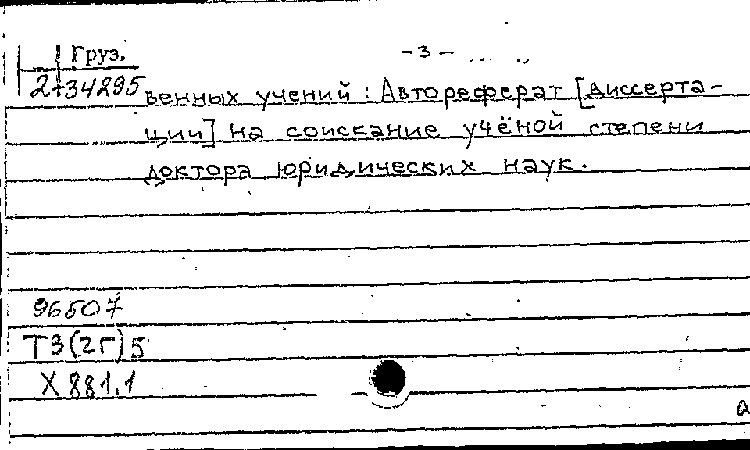 Груз. - 3 -
2+34295
венных учений : Автореферат [диссерта-
ции] на соискание учёной степени
доктора юридических наук.
96507
Т3(2Г)5
Х881.1
а